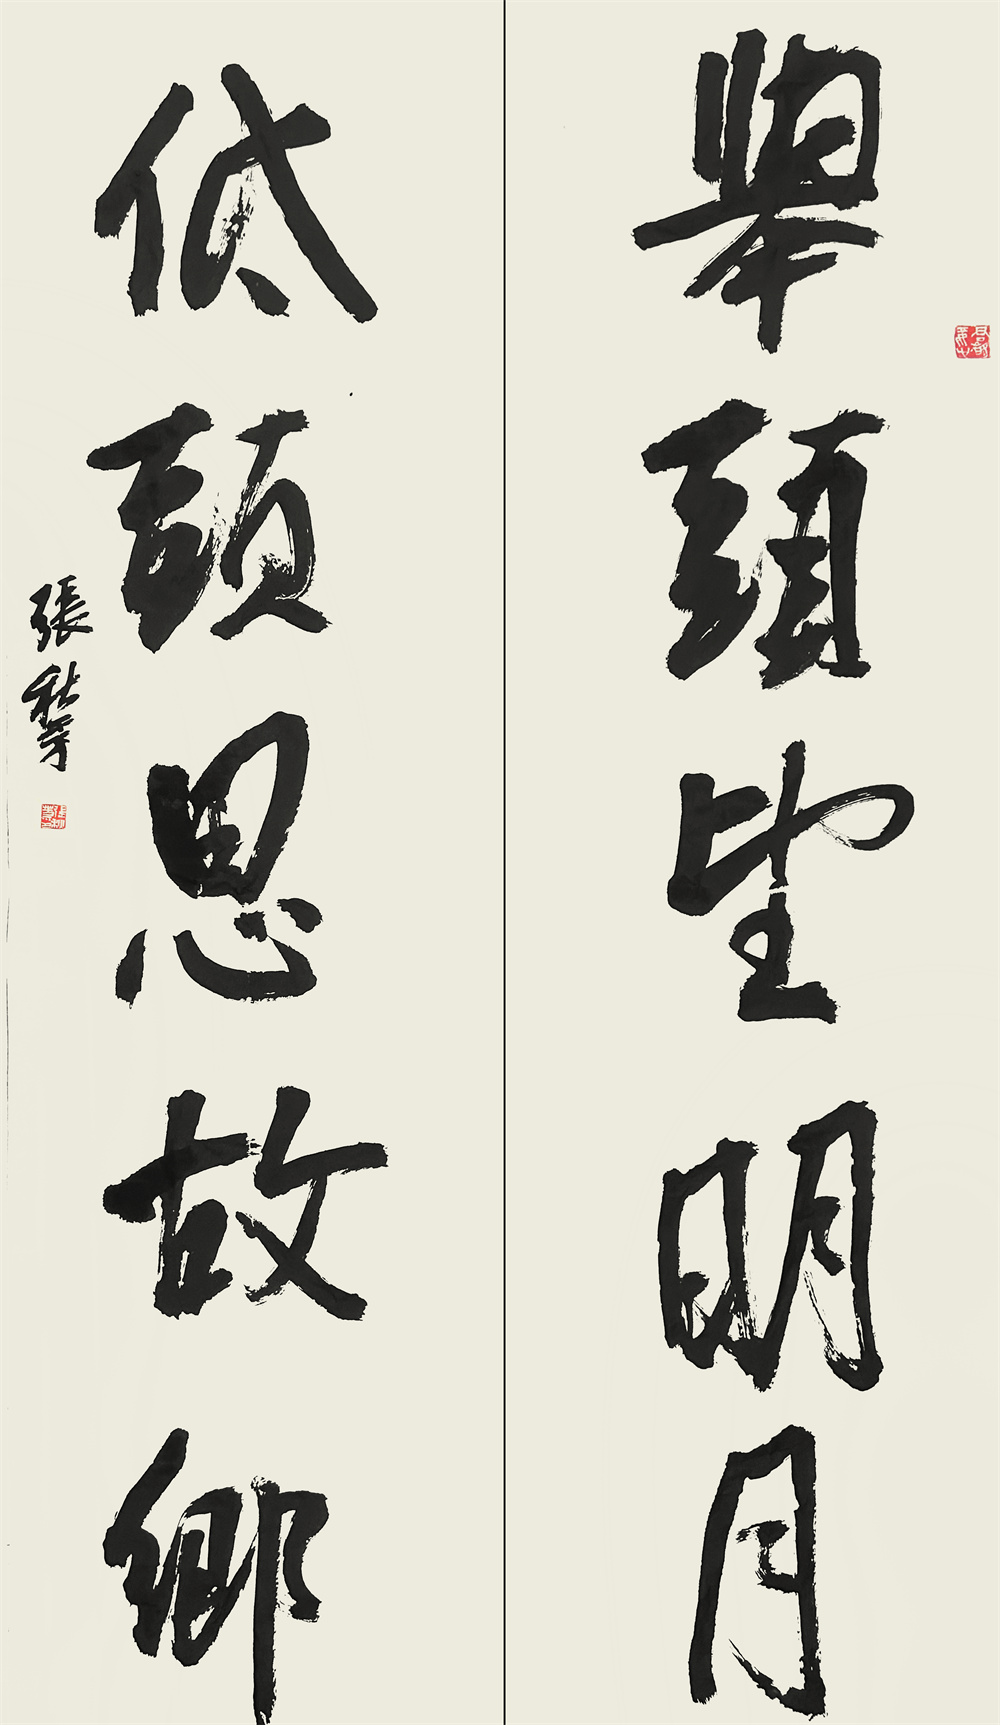 舉頭望明月
低頭思故鄉
張秋